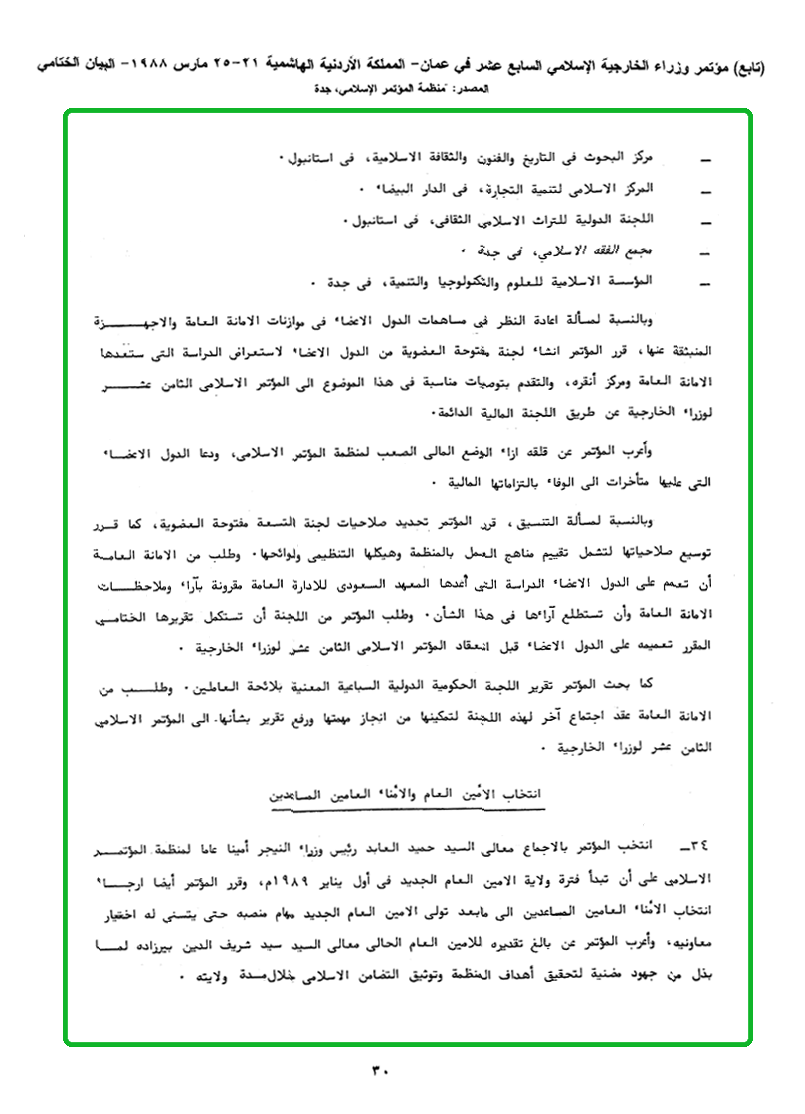 (تابع) مؤتمر وزراء الخارجية الإسلامي السابع عشر في عمان- المملكة الأردنية الهاشمية ٢١-٢٥ مارس ١٩٨٨- البيان الختامي
المصدر: منظمة المؤتمر الإسلامي، جدة
— مركز البحوث فى التاريخ والفنون والثقافة الاسلامية، فى استانبول٠
— المركز الاسلامى لتنمية التجارة، فى الدار البيضاء ٠
— اللجنة الدولية للتراث الاسلامى الثقافى، فى استانبول٠
— مجمع الفقه الاسلامي، فى جدة ٠
— المؤسسة الاسلامية للعلوم والتكنولوجيا والتنمية، فى جدة ٠
وبالنسبة لمسألة اعادة النظر في مساهمات الدول الاعضاء فى موازنات الامانة العامة والاجهـــزة
المنبثقة عنها، قرر المؤتمر انشاء لجنة مفتوحة العضوية من الدول الاعضاء لاستعراض الدراسة التى ستعدها
الامانة العامة ومركز أنقره، والتقدم بتوصيات مناسبة فى هذا الموضوع الى المؤتمر الاسلامى الثامن عشـــر
لوزراء الخارجية عن طريق اللجنة المالية الدائمة٠
وأعرب المؤتمر عن قلقه ازاء الوضع المالى الصعب لمنظمة المؤتمر الاسلامى، ودعا الدول الاعضـاء
التى عليها متأخرات الى الوفاء بالتزاماتها المالية ٠
وبالنسبة لمسألة التنسيق، قرر المؤتمر تحديد صلاحيات لجنة التسعة مفتوحة العضوية، كما قـرر
توسيع صلاحياتها لتشمل تقييم مناهج العمل بالمنظمة وهيكلها التنظيمى ولوائحها٠ وطلب من الامانة العامـة
أن تعمم على الدول الاعضاء الدراسة التى أعدها المعهد السعودى للادارة العامة مقرونة بآراء وملاحظــات
الامانة العامة وأن تستطلع آراءها فى هذا الشأن٠ وطلب المؤتمر من اللجنة أن تستكمل تقريرها الختامـي
المقرر تعميمه على الدول الاعضاء قبل انعقاد المؤتمر الاسلامى الثامن عشر لوزراء الخارجية ٠
كما بحث المؤتمر تقرير اللجنة الحكومية الدولية السباعية المعنية بلائحة العاملين٠ وطلــب من
الامانة العامة عقد اجتماع آخر لهذه اللجنة لتمكينها من انجاز مهمتها ورفع تقرير بشأنها٠ الى المؤتمر الاسلامي
الثامن عشر لوزراء الخارجية ٠
انتخاب الأمين العام والأمناء العامين المساعدين
٣٤— انتخب المؤتمر بالاجماع معالى السيد حميد العابد رئيس وزراء النيجر أمينا عاما لمنظمة المؤتمــر
الاسلامى على أن تبدأ فترة ولاية الامين العام الجديد فى أول يناير ١٩٨٩م، وقرر المؤتمر أيضا ارجـاء
انتخاب الأمناء العامين المساعدين الى مابعد تولى الامين العام الجديد مهام منصبه حتى يتسنى له اختيار
معاونيه، وأعرب المؤتمر عن بالغ تقديره للامين العام الحالى معالى السيد سيد شريف الدين بيرزاده لمــا
بذل من جهود مضنية لتحقيق أهداف المنظمة وتوثيق التضامن الاسلامى خلال مـدة ولايته ٠
٣٠